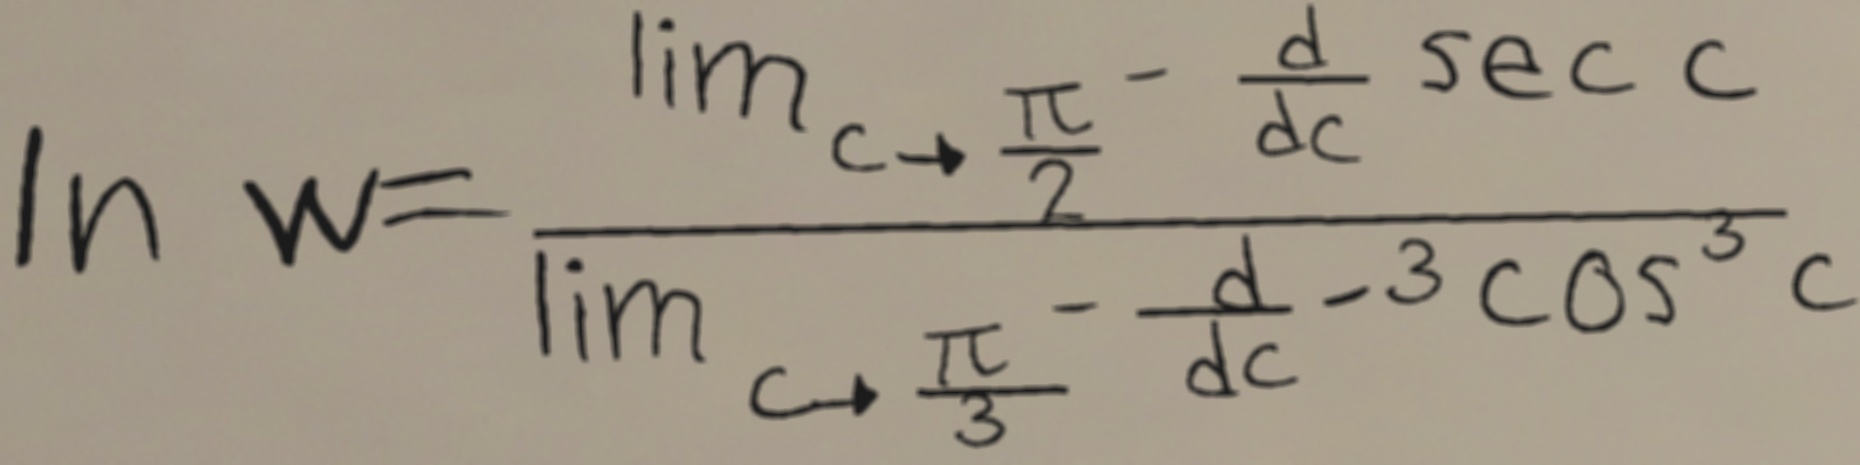 \ln w = \frac{\lim_{c \to \frac{\pi}{2}^-} \frac{d}{dc} \sec c}{\lim_{c \to \frac{\pi}{3}^-} \frac{d}{dc} -3 \cos^3 c}